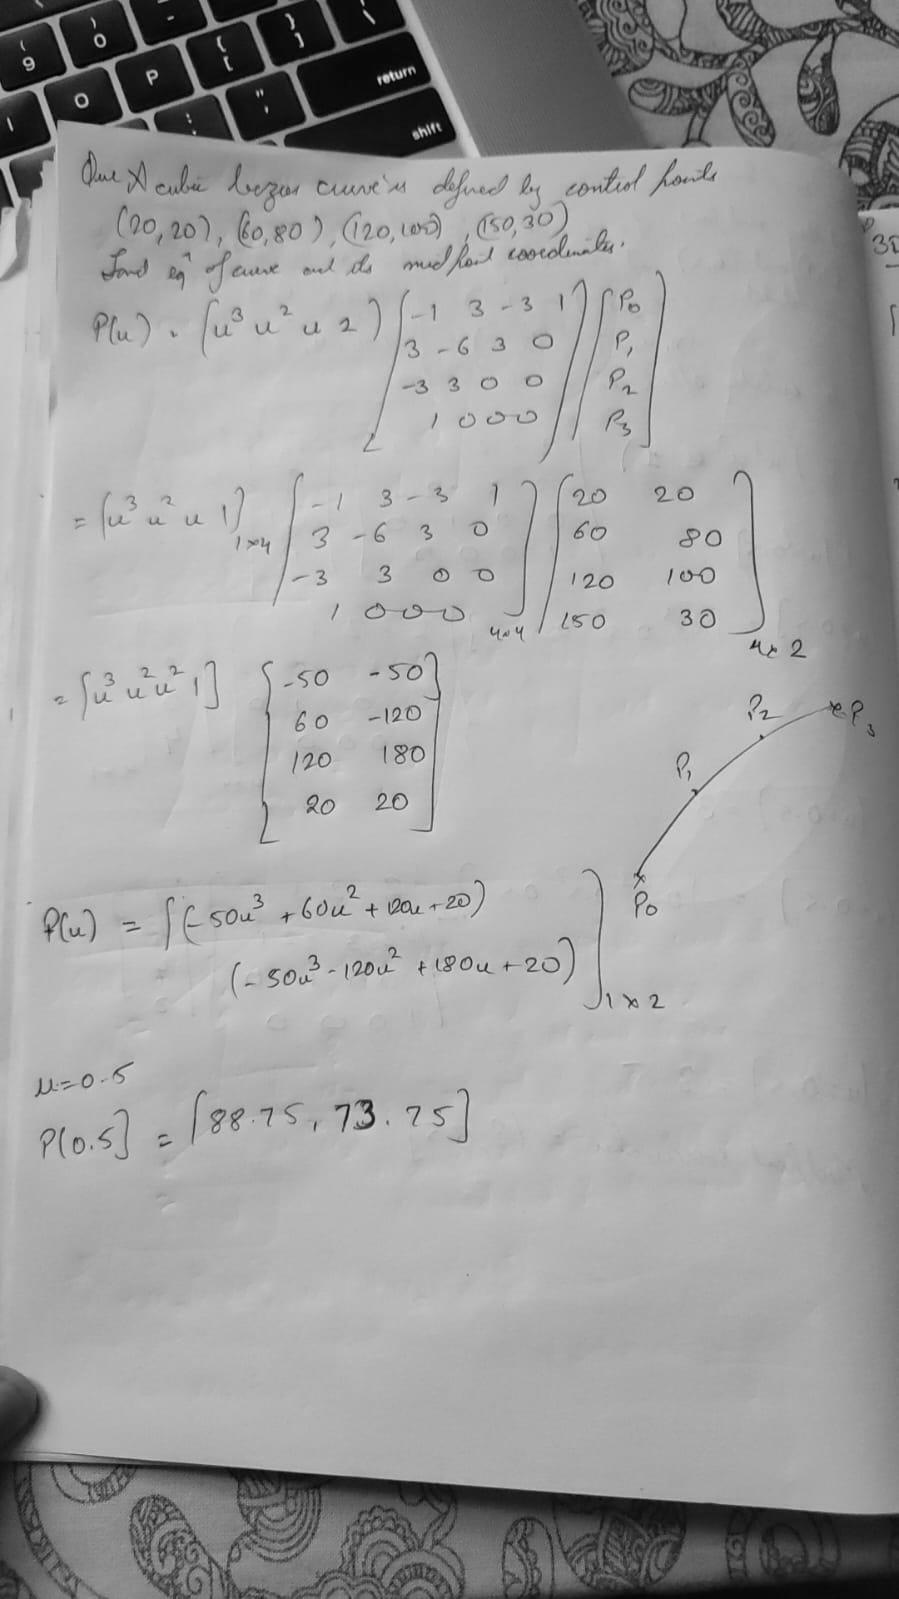 9
0
-
{
[
}
]
|
\
O
P
:
;
"
'
return
shift
Que A cubic bezier curve is defined by control points
(20,20), (60,80), (120,100), (150,30)
Find eqn of curve and its mid point coordinates.
P(u) = [u³ u² u 2) [-1 3 -3 1] [P0
3 -6 3 0 P1
-3 3 0 0 P2
1 0 0 0 P3]
= [u³ u² u 1] 1x4 [-1 3 -3 1] [20 20
3 -6 3 0 60 80
-3 3 0 0 120 100
1 0 0 0] 4x4 150 30] 4x2
= [u³ u² u² 1] [-50 -50
60 -120
120 180
20 20]
P2
P3
P1
P0
P(u) = [(-50u³ + 60u² + 120u + 20)
(-50u³ - 120u² + 180u + 20)] 1x2
u=0.5
P(0.5] = [88.75, 73.75]